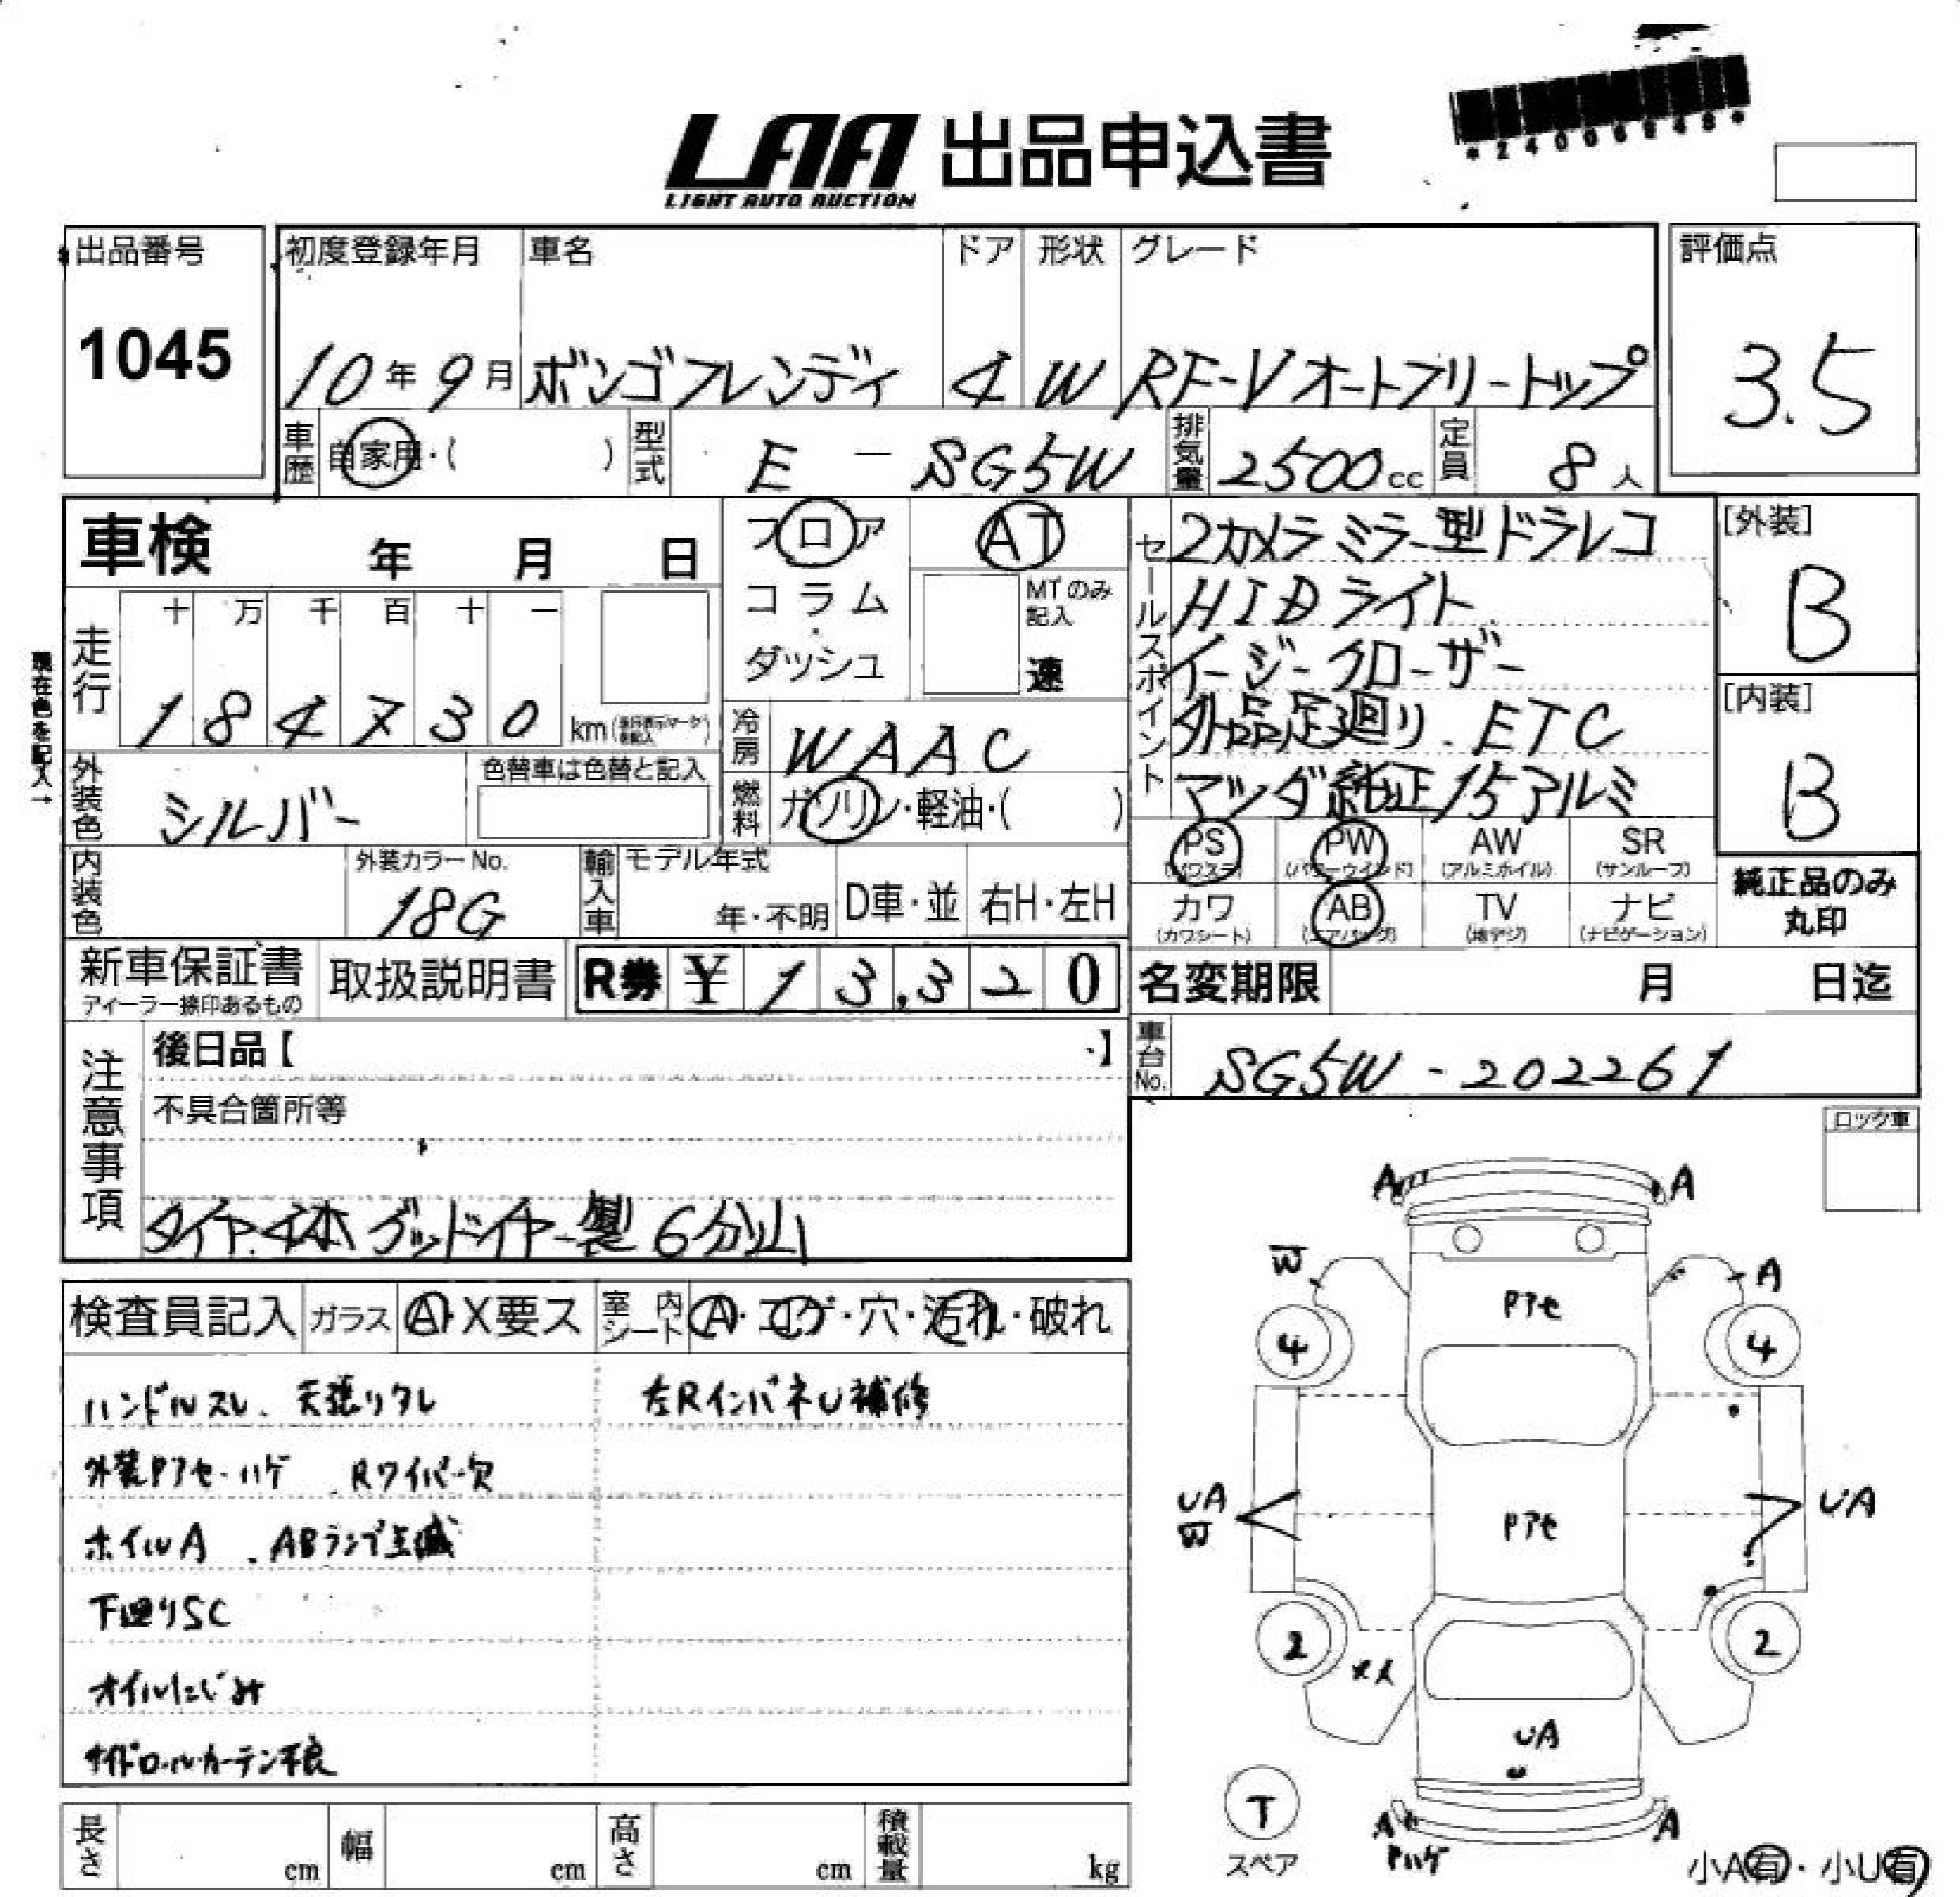 LAA 出品申込書
LIGHT AUTO AUCTION
*24006248*
出品番号 初度登録年月 車名 ドア 形状 グレード 評価点
1045 10年9月 ボンゴフレンディ 4 W RF-Vオートフリートップ 3.5
車歴 自家用・( ) 型式 E - SG5W 排気量 2500cc 定員 8人
車検 年 月 日
フロア
コラム
・
ダッシュ
AT
MTのみ
記入
速
セールスポイント
2カメラミラー型ドラレコ
HIDライト
イージークローザー
外品足廻り ETC
マツダ純正15アルミ
[外装]
B
[内装]
B
現在色を記入→
走行 十 万 千 百 十 一
184730 km
冷房 WAAC
燃料 ガソリン・軽油・( )
外装色 シルバー 色替車は色替と記入
PS (パワステ) PW (パワーウインド) AW (アルミホイル) SR (サンルーフ)
カワ (カワシート) AB (エアバッグ) TV (地デジ) ナビ (ナビゲーション)
純正品のみ
丸印
内装色 外装カラーNo. 18G 輸入車 モデル年式 年・不明 D車・並 右H・左H
新車保証書 取扱説明書 R券 ¥13,320
ディーラー捺印あるもの
名変期限 月 日迄
車台No. SG5W-202261
注意事項
後日品【 】
不具合箇所等
タイヤ4本グッドイヤー製6分山
ロック車
検査員記入 ガラス A・X要ス 室内シート A・コゲ・穴・汚れ・破れ
ハンドルスレ、天張りタレ 左RインパネU補修
外装Pアセ・ハゲ Rワイパー欠
ホイルA ABランプ点滅
下廻りSC
オイルにじみ
サイドロールカーテン不良
A A
W A
Pアセ
4 4
UA UA
W
Pアセ
2 2
UA
U
T
スペア
A A
Pハゲ
小A有・小U有
長さ cm 幅 cm 高さ cm 積載量 kg